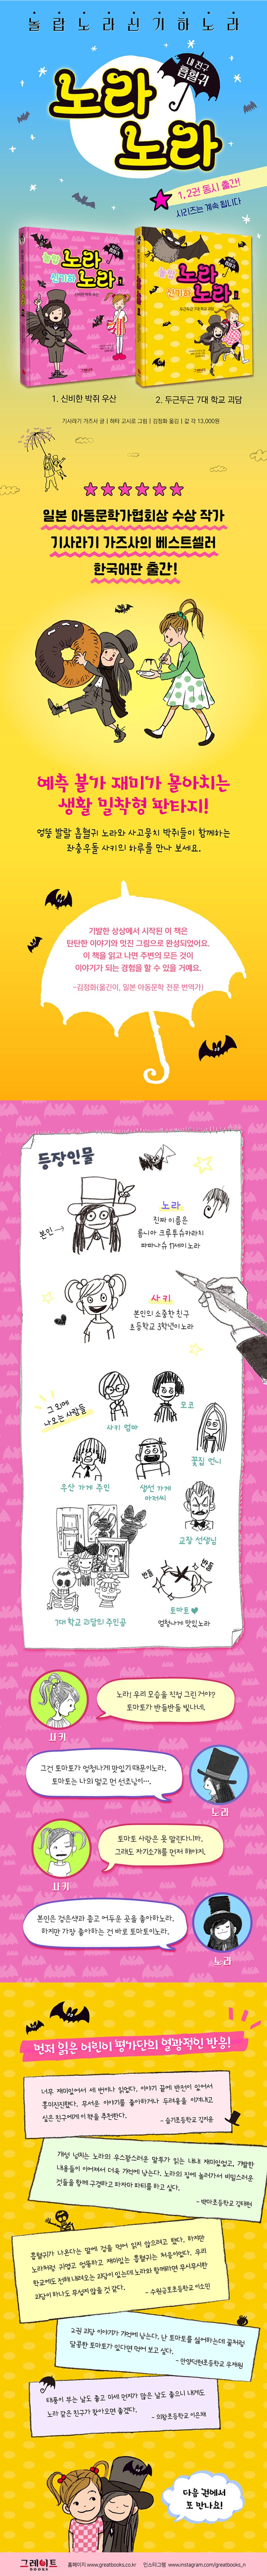 놀랍노라 신기하노라
내 친구
흡혈귀
노라
노라
1, 2권 동시 출간!
시리즈는 계속 됩니다
놀랍 노라
신기하 노라 1
놀랍 노라
신기하 노라
1. 신비한 박쥐 우산
2. 두근두근 7대 학교 괴담
기사라기 가즈사 글 | 하타 고시로 그림 | 김정화 옮김 | 값 각 13,000원
일본 아동문학가협회상 수상 작가
기사라기 가즈사의 베스트셀러
한국어판 출간!
예측 불가 재미가 몰아치는
생활 밀착형 판타지!
엉뚱 발랄 흡혈귀 노라와 사고뭉치 박쥐들이 함께하는
좌충우돌 사키의 하루를 만나 보세요.
기발한 상상에서 시작된 이 책은
탄탄한 이야기와 멋진 그림으로 완성되었어요.
이 책을 읽고 나면 주변의 모든 것이
이야기가 되는 경험을 할 수 있을 거예요.
-김정화(옮긴이, 일본 아동문학 전문 번역가)
등장인물
본인→
노라
진짜 이름은
사키
본인의 소중한 친구
초등학교 3학년이노라
그 외에
나오는 사람들
사키 엄마
모코
꽃집 언니
우산 가게 주인
생선 가게
아저씨
교장 선생님
7대 학교 괴담의 주인공
반들
반들
토마토♥
엄청나게 맛있노라
노라! 우리 모습을 직접 그린 거야?
토마토가 반들반들 빛나네.
사키
그건 토마토가 엄청나게 맛있기 때문이노라.
토마토는 나의 멀고 먼 선조님이….
노라
토마토 사랑은 못 말린다니까.
그래도 자기소개를 먼저 해야지.
사키
본인은 검은색과 좁고 어두운 곳을 좋아하노라.
하지만 가장 좋아하는 건 바로 토마토이노라.
노라
먼저 읽은 어린이 평가단의 열광적인 반응!
너무 재미있어서 세 번이나 읽었다. 이야기 끝에 반전이 있어서
흥미진진했다. 무서운 이야기를 좋아하거나 두려움을 이겨내고
싶은 친구에게 이 책을 추천한다.
- 슬기초등학교 김지윤
개성 넘치는 노라의 우스꽝스러운 말투가 읽는 내내 재미있었고, 기발한
내용들이 이어져서 더욱 기억에 남는다. 노라의 집에 놀러가서 비밀스러운
것들을 함께 구경하고 파자마 파티를 하고 싶다.
흡혈귀가 나온다는 말에 겁을 먹어 읽지 않으려고 했다. 하지만
노라처럼 귀엽고 엉뚱하고 재미있는 흡혈귀는 처음이었다. 우리
학교에도 전해 내려오는 괴담이 있는데 노라와 함께라면 무시무시한
괴담이 하나도 무섭지 않을 것 같다.
2권 괴담 이야기가 기억에 남는다. 난 토마토를 싫어하는데 꿀처럼
달콤한 토마토가 있다면 먹어 보고 싶다.
태풍이 부는 날도 좋고 미세 먼지가 많은 날도 좋으니 내게도
노라 같은 친구가 찾아오면 좋겠다.
다음 권에서
또 만나요!
그레이트
BOOKS
홈페이지 www.greatbooks.co.kr 인스타그램 www.instagram.com/greatbooks_n